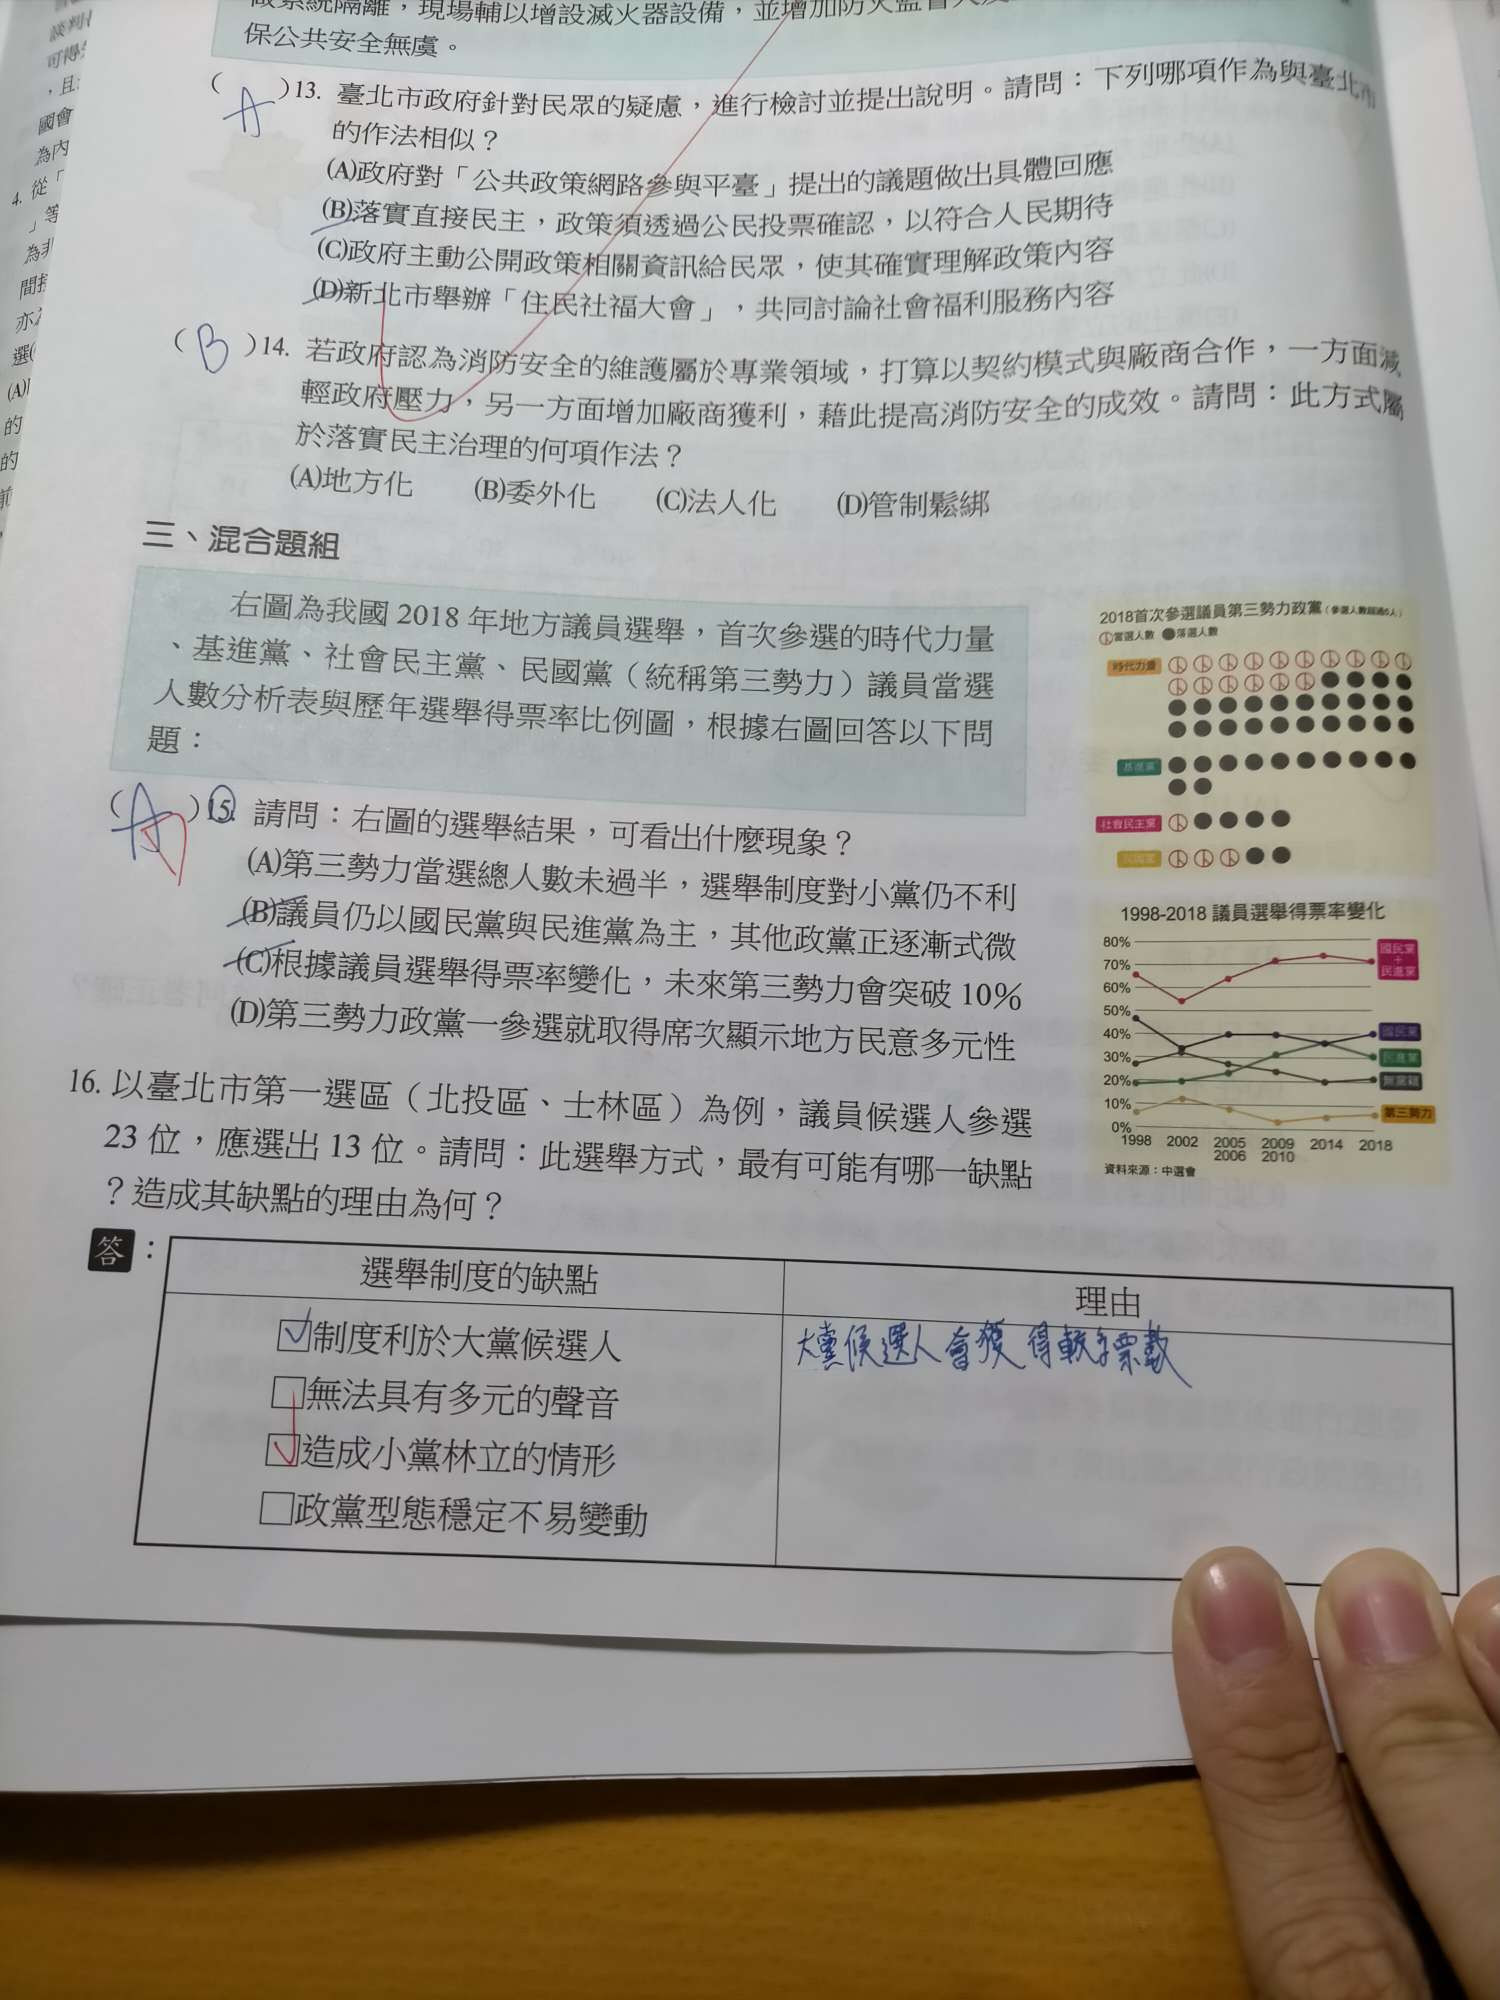 保公共安全無虞。
( A )13. 臺北市政府針對民眾的疑慮，進行檢討並提出說明。請問：下列哪項作為與臺北市
的作法相似？
(A)政府對「公共政策網路參與平臺」提出的議題做出具體回應
(B)落實直接民主，政策須透過公民投票確認，以符合人民期待
(C)政府主動公開政策相關資訊給民眾，使其確實理解政策內容
(D)新北市舉辦「住民社福大會」，共同討論社會福利服務內容
( B )14. 若政府認為消防安全的維護屬於專業領域，打算以契約模式與廠商合作，一方面減
輕政府壓力，另一方面增加廠商獲利，藉此提高消防安全的成效。請問：此方式屬
於落實民主治理的何項作法？
(A)地方化 (B)委外化 (C)法人化 (D)管制鬆綁
三、混合題組
右圖為我國 2018 年地方議員選舉，首次參選的時代力量
、基進黨、社會民主黨、民國黨（統稱第三勢力）議員當選
人數分析表與歷年選舉得票率比例圖，根據右圖回答以下問
題：
( A )15. 請問：右圖的選舉結果，可看出什麼現象？
(A)第三勢力當選總人數未過半，選舉制度對小黨仍不利
(B)議員仍以國民黨與民進黨為主，其他政黨正逐漸式微
(C)根據議員選舉得票率變化，未來第三勢力會突破 10%
(D)第三勢力政黨一參選就取得席次顯示地方民意多元性
2018首次參選議員第三勢力政黨（參選人數超過5人）
當選人數 落選人數
時代力量
基進黨
社會民主黨
民國黨
1998-2018 議員選舉得票率變化
80%
70%
60%
50%
40%
30%
20%
10%
0%
國民黨
+
民進黨
國民黨
民進黨
無黨籍
第三勢力
1998 2002 2005 2009 2014 2018
2006 2010
資料來源：中選會
16. 以臺北市第一選區（北投區、士林區）為例，議員候選人參選
23 位，應選出 13 位。請問：此選舉方式，最有可能有哪一缺點
？造成其缺點的理由為何？
答：
選舉制度的缺點 理由
制度利於大黨候選人 大黨候選人會獲得較多票數
無法具有多元的聲音
造成小黨林立的情形
政黨型態穩定不易變動